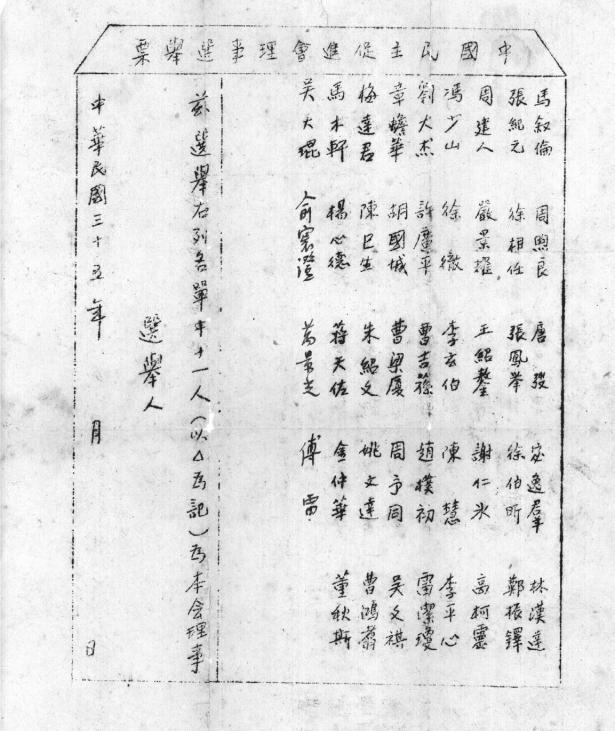 中國民主促進會理事選舉票
馬叙倫　周煦良　唐弢　宓逸羣　林漢達
張紀元　徐相任　張鳳舉　徐伯昕　鄭振鐸
周建人　嚴景耀　王紹鏊　謝仁冰　高柯靈
馮少山　徐徹　李玄伯　陳慧　李平心
劉大杰　許廣平　曹吉　趙樸初　雷潔瓊
章蟾華　胡國城　曹梁廈　周予同　吳文祺
梅達君　陳巳生　朱紹文　姚文達　曹鴻翥
馬木軒　楊心德　蔣天佐　金仲華　董秋斯
吳大琨　俞寰澄　萬景光　傅雷
茲選舉右列各單中十一人(以△為記)為本會理事
選舉人
中華民國三十五年　月　日